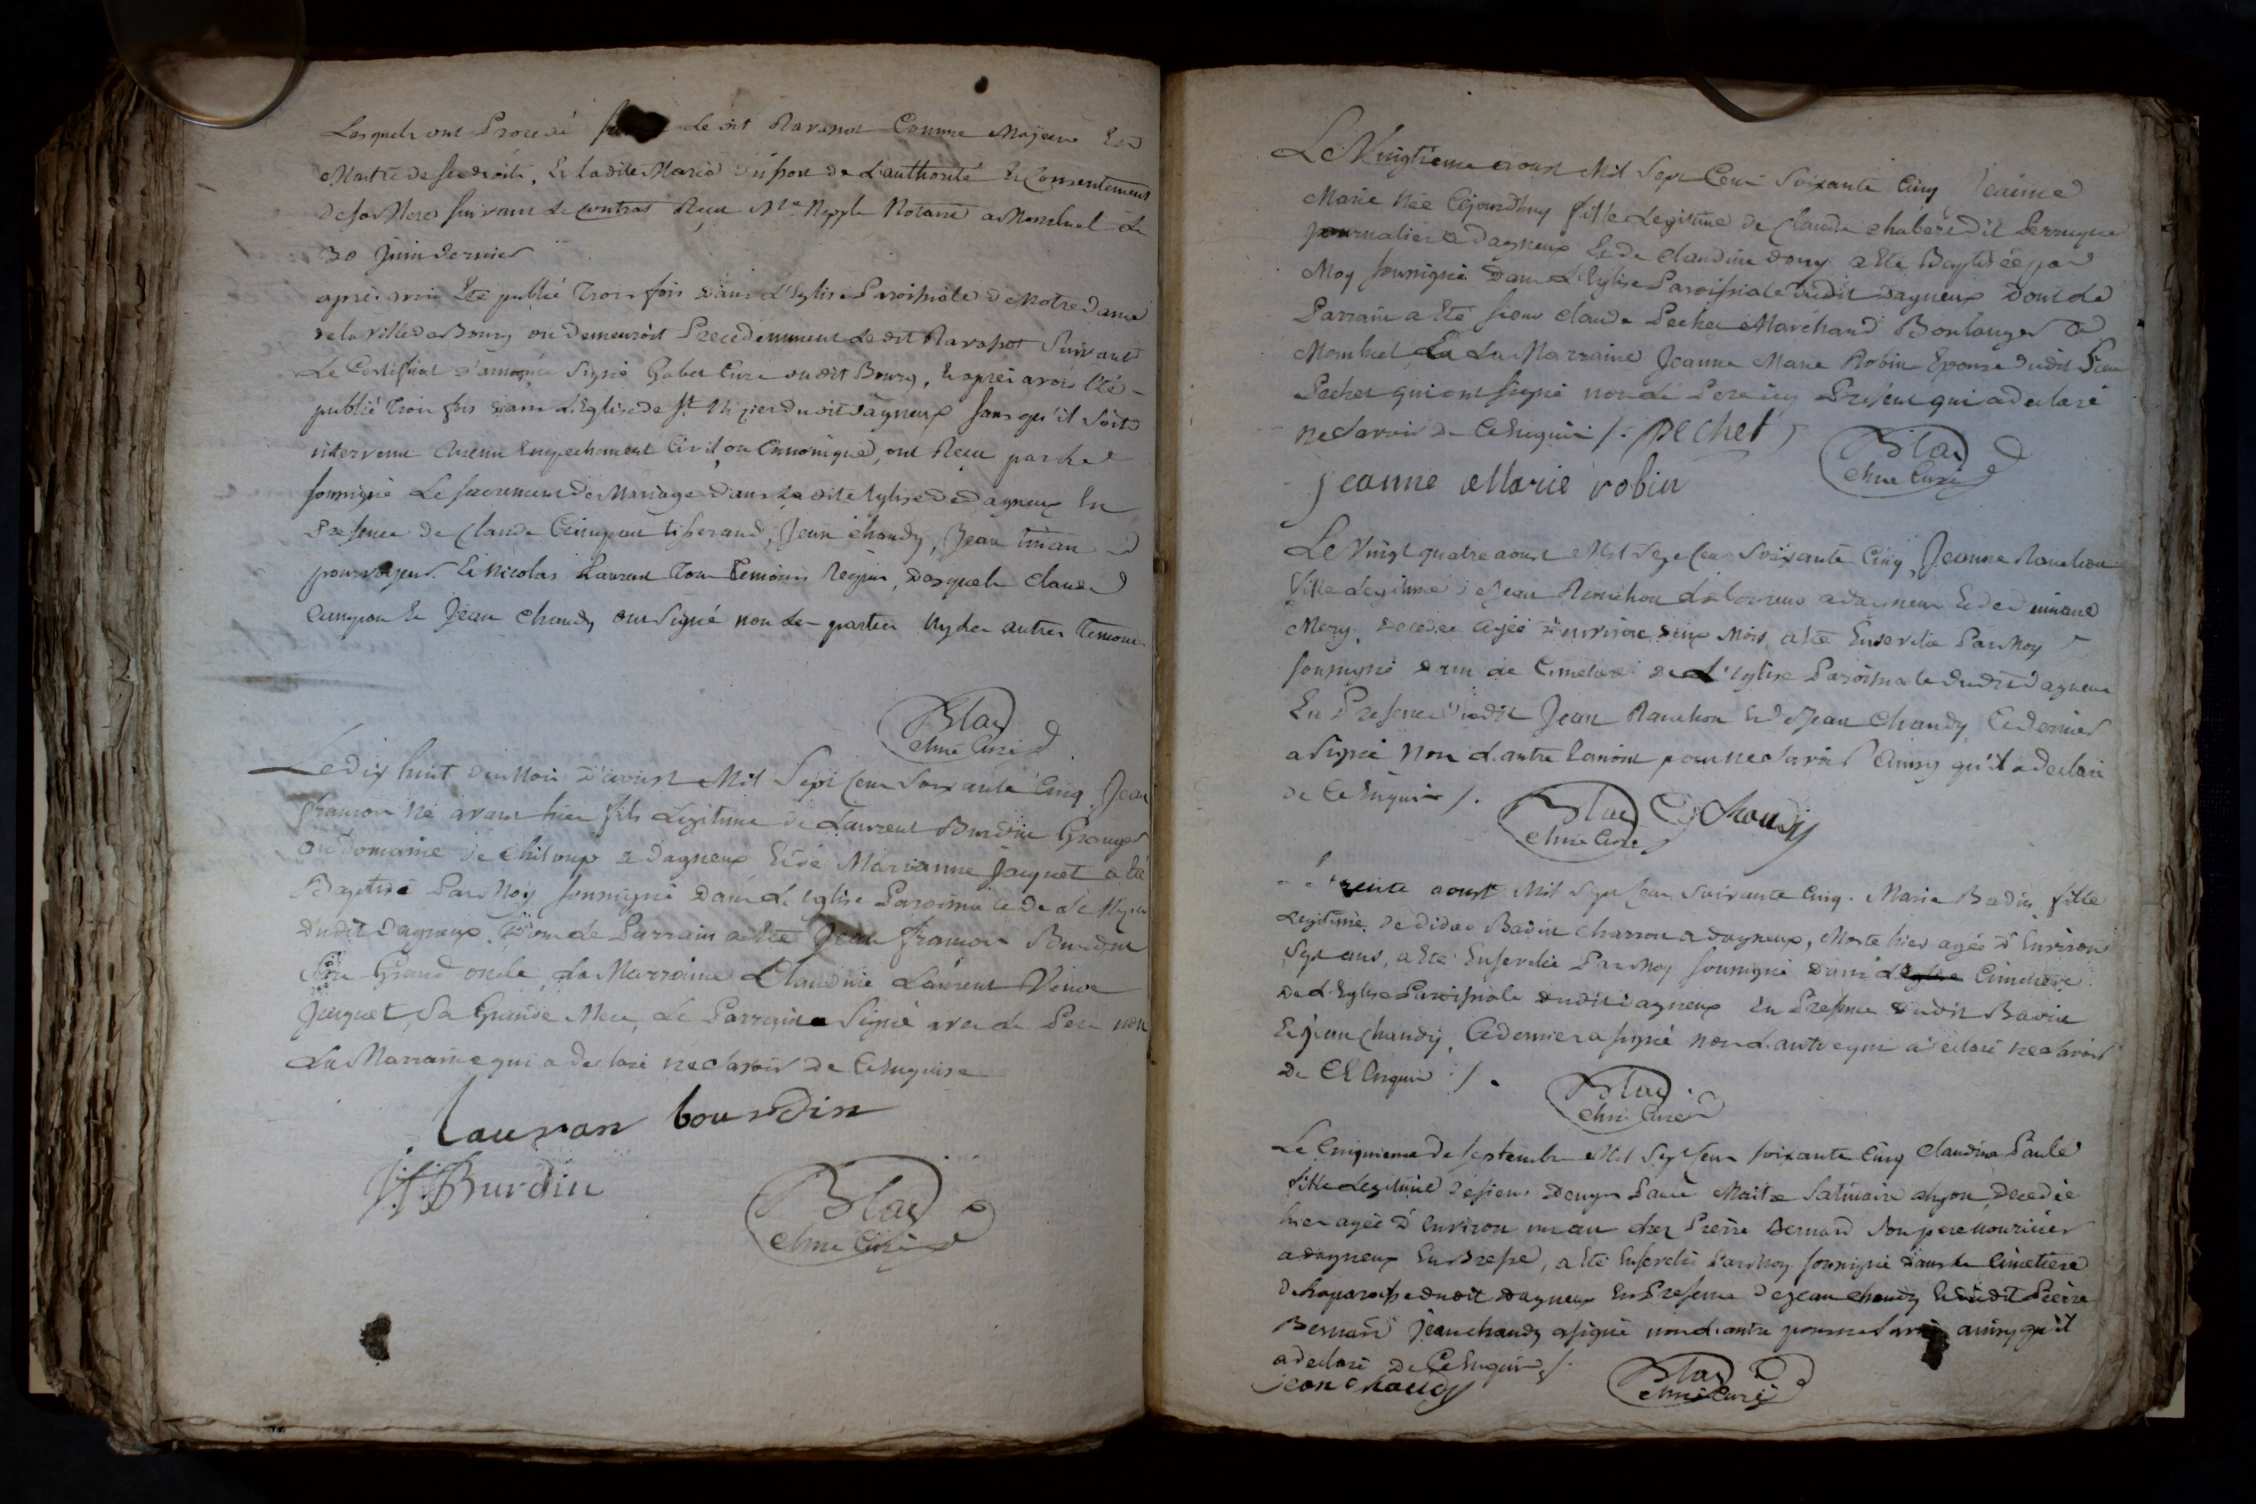 Lesquels ont Procedé le dit Ravanot Comme Majeur Et
Maitre de ses droits, Et la dite Marie de L'authorité Et Consentement
de sa Mere suivant Le contrat Reçu Me Nepple Notaire a Monluel Le
30 Juin dernier
après avoir Eté publié Trois fois dans L'Eglise Paroissiale de Notre Dame
de la Ville de Bourg ou Demeuroit Precedemment Le dit Ravanot Suivant
Le Certificat Signé Gabet Curé dudit Bourg, Et après avoir Eté
publié Trois fois dans L'Eglise de St Nizier dudit Dagneux sans qu'il Soit
intervenu Aucun Empechement Civil ou Canonique, ont Reçu par Le
soussigné Le sacrement de Mariage dans La dite Eglise de Dagneux En
Presence de Claude tisserand, Jean Chaudy, Jean
Et Nicolas Laurent Tous Temoins Requis, Desquels Claude
Et Jean Chaudy ont Signé non Les parties Ny Les autres Temoins
Blad
Curé
Le dix huit du Mois D'aoust Mil Sept Cent Soixante Cinq Jean
François Né avant hier fils Legitime de Laurent Burdin Granger
au Domaine de Chiloup a Dagneux Et de Marianne Jacquet a Eté
Baptisé Par Moy soussigné Dans L'Eglise Paroissiale de St Nizier
Dudit Dagneux, Dont Le Parrain a Eté Jean François Bourdin
Son Grand oncle, La Marraine Claudine Laurent Veuve
Jacquet, Sa Grande Mere, Le Parrain a Signé avec Le Pere non
La Marraine qui a declaré ne Savoir De Ce Enquise
Lauran bourdin
J. f. Burdin
Blad
Curé
Le Vingtieme aoust Mil Sept Cent Soixante Cinq
Marie Née Ejourdhuy fille Legitime de Claude Chabert dit Perruque
journalier a Dagneux Et de Claudine Douy a Eté Baptisée par
Moy soussigné Dans L'Eglise Paroissiale Dudit Dagneux Dont Le
Parrain a Eté sieur Claude Pechet Marchand Boulanger a
Monluel Et La Marraine Jeanne Marie Robin Epouse Dudit Sieur
Pechet qui ont signé non Le Pere icy Present qui a declaré
ne Savoir De Ce Enquis /. pechet
Blad
Curé
jeanne Marie robin
Le Vingt quatre aoust Mil Sept Cent Soixante Cinq, Jeanne Rouchon
fille Legitime de Jean Rouchon Laboureur a Dagneux Et de
Mery, decedée Agée D'environ deux Mois, a Eté Ensevelie Par Moy
soussigné dans Le Cimetiere de L'Eglise Paroissiale dudit Dagneux
En Presence dudit Jean Rouchon Et de Jean Chaudy Ce dernier
a Signé Non L'autre pour ne Savoir Ainsy qu'il a declaré
de Ce Enquis /.
Blad
Curé
Chaudy
Le trente aoust Mil Sept Cent Soixante Cinq. Marie Badin fille
Legitime de Badin Charron a Dagneux, Morte hier agée D'Environ
Sept ans, a Eté Ensevelie Par Moy soussigné dans Cimetiere
De L'Eglise Paroissiale dudit Dagneux En Presence dudit Badin
Et Jean Chaudy, Ce dernier a signé Non L'autre qui a declaré ne Savoir
De Ce Enquis /.
Blad
Curé
Le Cinquieme de septembre Mil Sept Cent soixante Cinq Claudine Paule
fille Legitime de sieur Paule Maitre decedée
hier agée D'Environ un an chez Pierre Bernard Son pere nouricier
a Dagneux En Bresse, a Eté Ensevelie Par Moy soussigné Dans Le Cimetiere
De la paroisse dudit Dagneux En Presence de Jean Chaudy Et dudit Pierre
Bernard Jean Chaudy a signé non L'autre pour ne Savoir ainsy qu'il
a declaré De Ce Enquis /.
jean chaudy
Blad
Curé